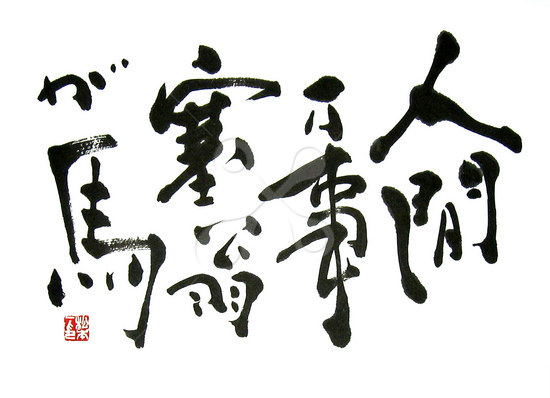 人間
万事
塞翁
が馬